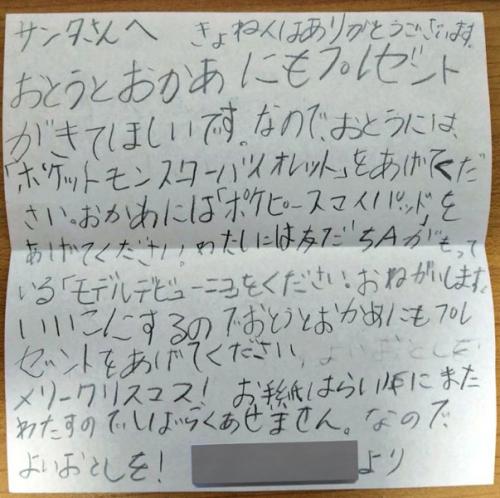 サンタさんへ きょねんはありがとうございます。
おとうとおかあにもプレゼント
がきてほしいです。なので、おとうには、
「ポケットモンスターバイオレット」をあげてくだ
さい。おかあには「ポケピースマイパッド」を
あげてください。わたしには友だちAがもって
いる「モデルデビューニ3をください。おねがいします。
いいこにするのでおとうとおかあにもプレ
ゼントをあげてください、よいおとしを
メリークリスコス! お手紙はらい年にまた
わたすのでしばらくあせません。なので、
よいおとしを! より